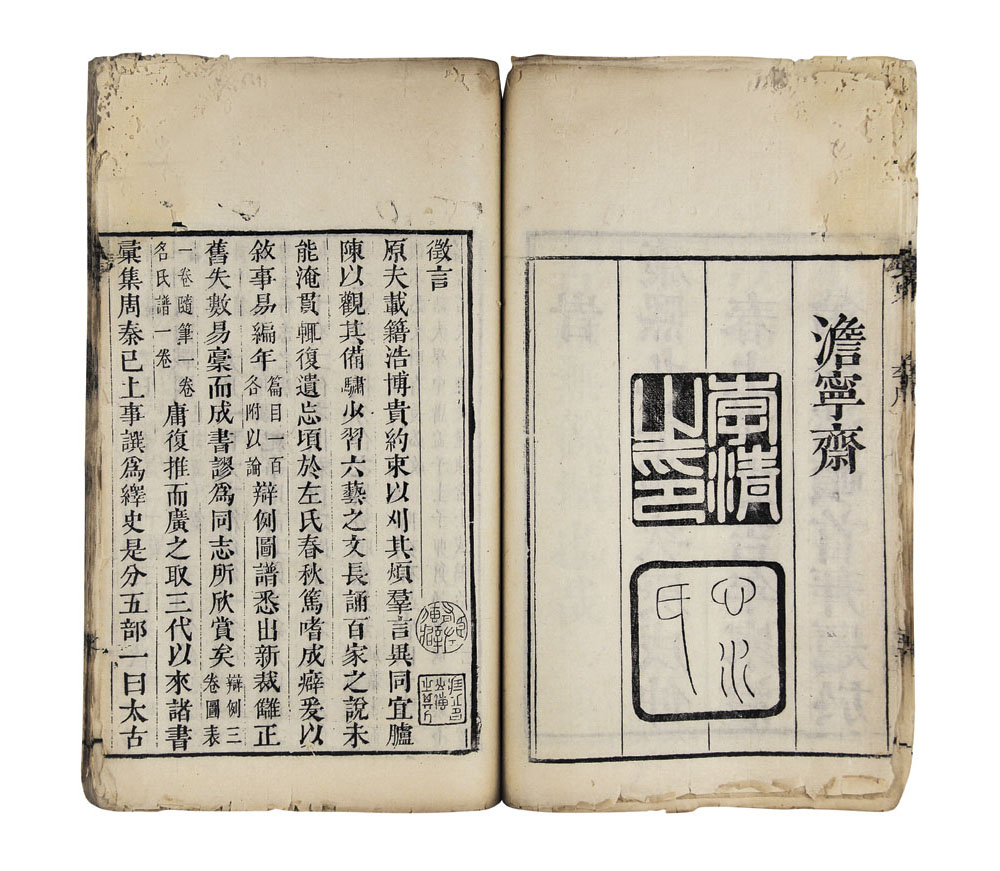 澹寧齋
李清之印
心水氏
徵言
原夫載籍浩博貴約束以刈其煩羣言異同宜臚
陳以觀其備驌少習六藝之文長誦百家之說未
能淹貫輒復遺忘頃於左氏春秋篤嗜成癖爰以
敘事易編年篇目一百各附以論辯例圖譜悉出新裁讎正
舊失數易藁而成書謬爲同志所欣賞矣辯例三卷圖表
一卷隨筆一卷名氏譜一卷庸復推而廣之取三代以來諸書
彙集周秦已上事譔爲繹史是分五部一曰太古